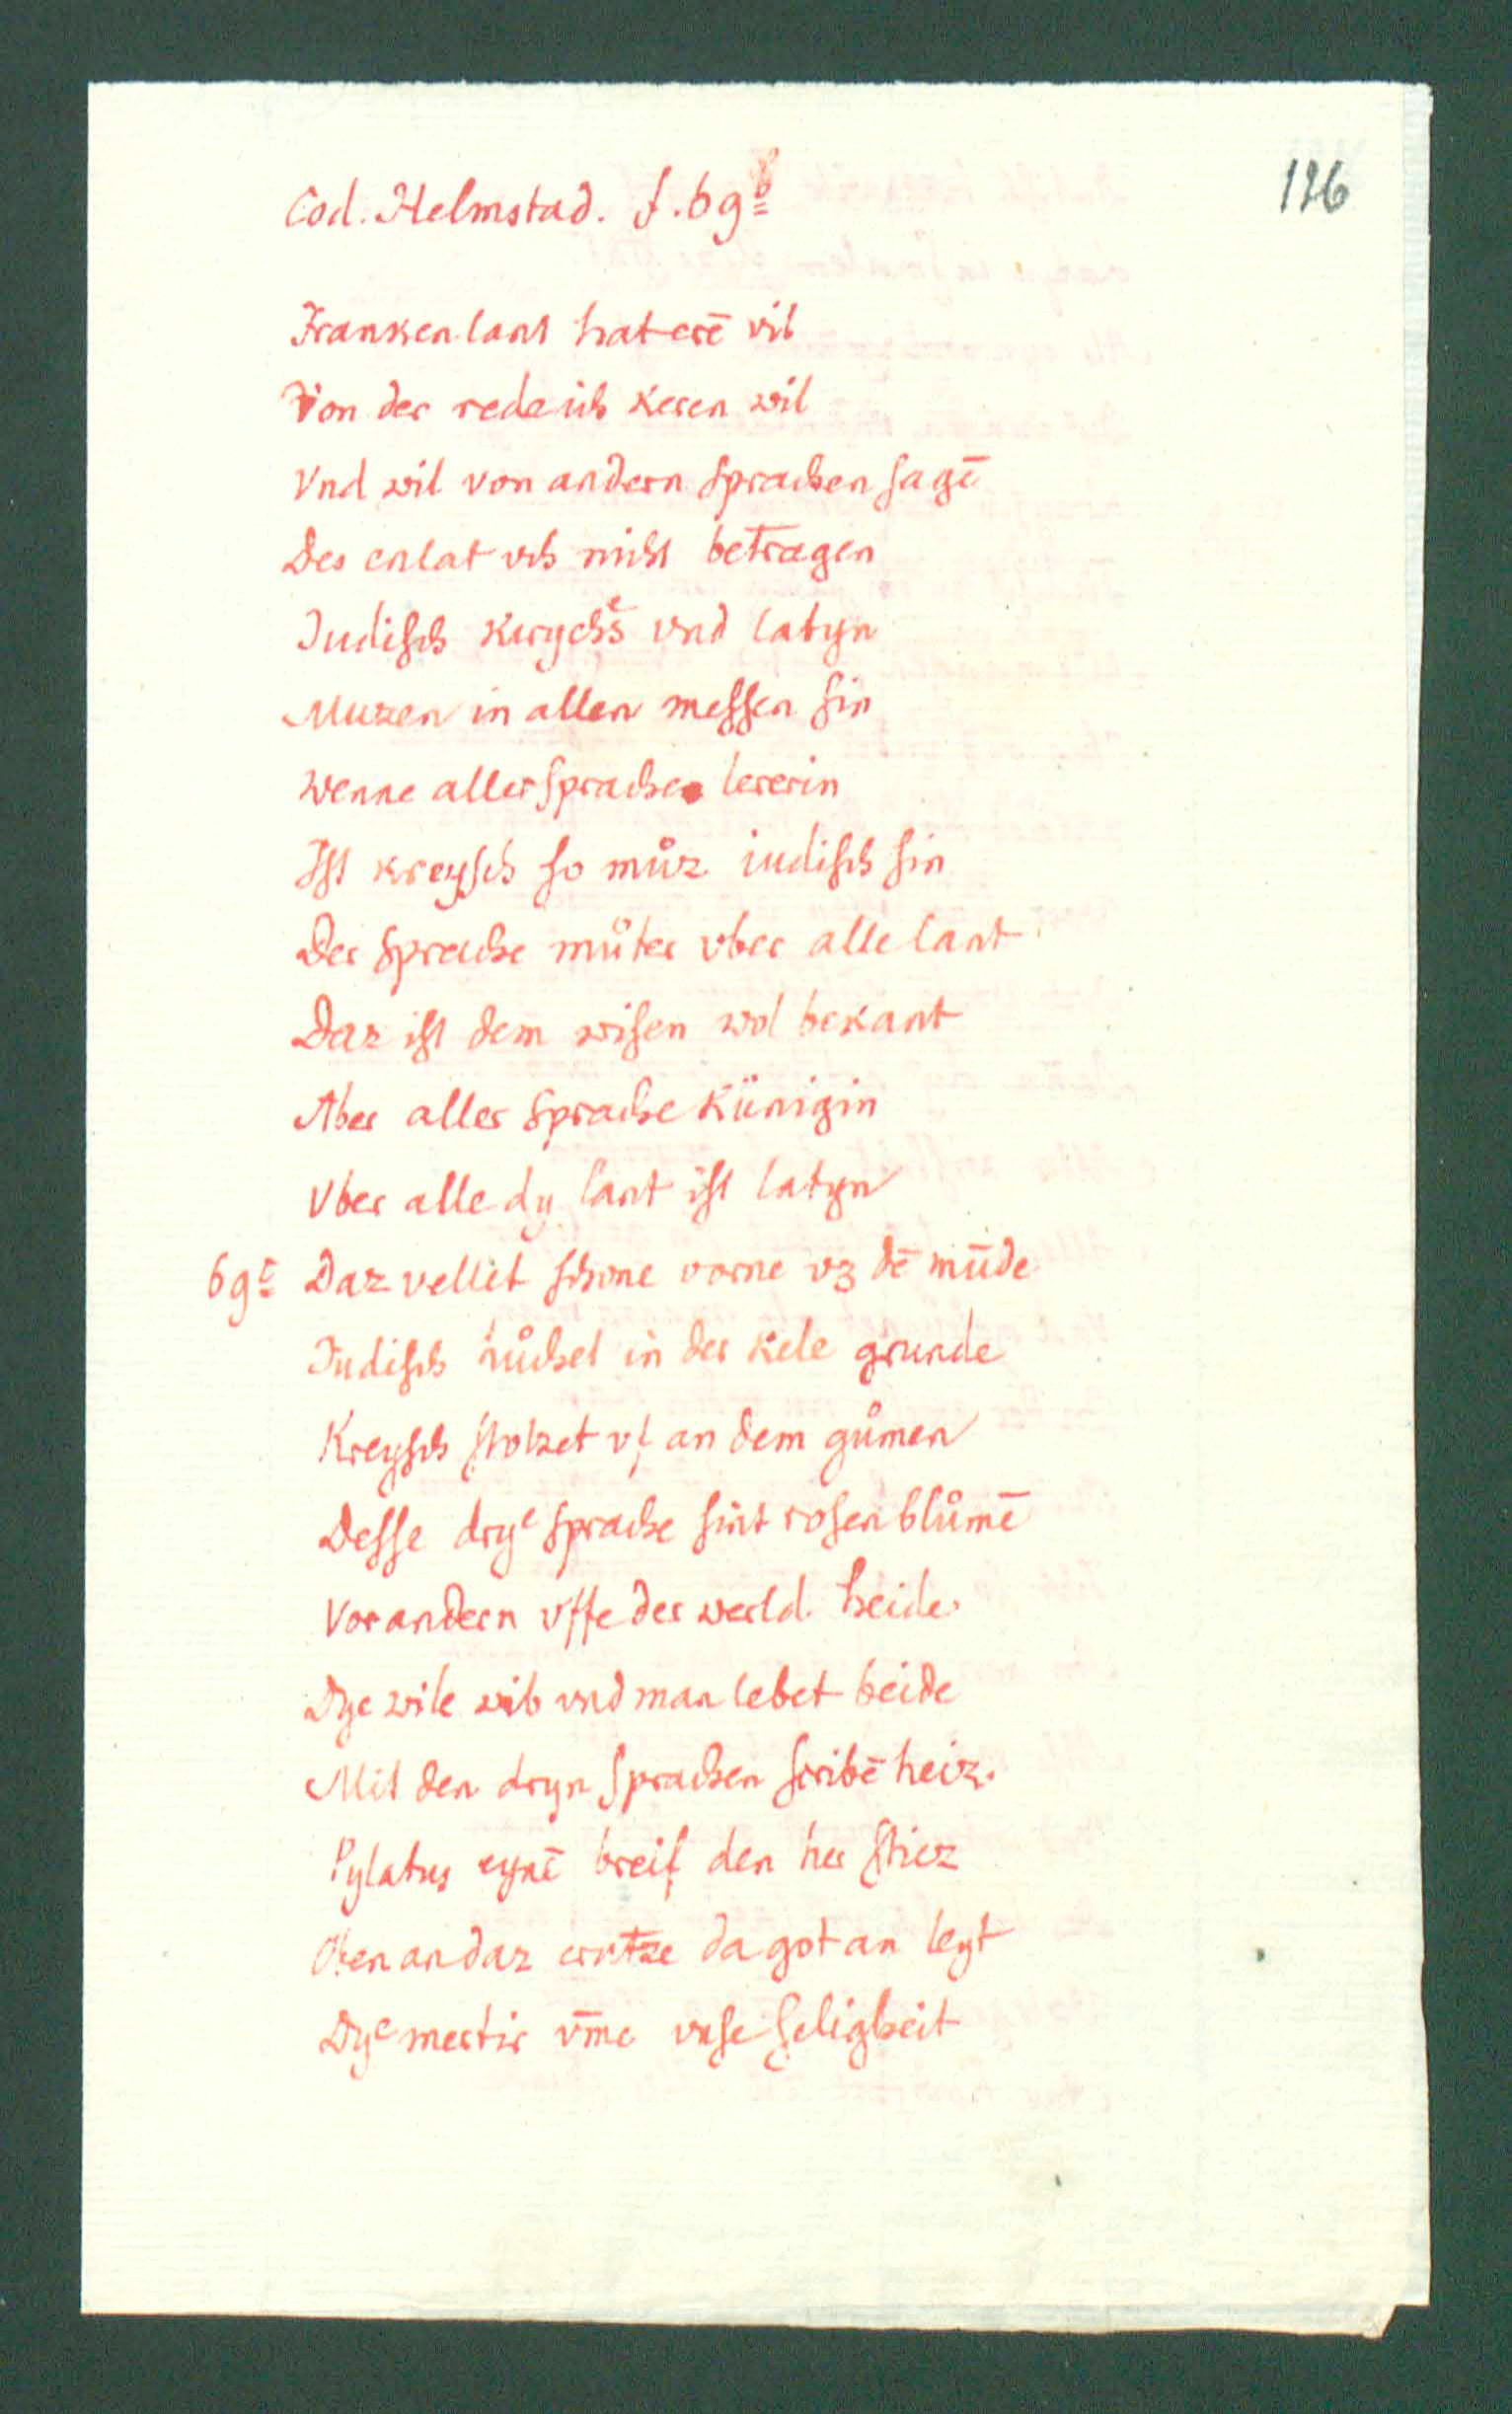 126
Cod. Helmstad. f. 69b
Frankenlant hat erē vil
Von der rede ich keren wil
Vnd wil von andern sprachen sagē
Des enlat vch nicht betragen
Iudisch kryechs vnd latyn
Muzen in allen messen sin
Wenne aller sprache lererin
Ist kreysch so můz iudisch sin
Der sprache můter vber alle lant
Daz ist dem wisen wol bekant
Aber aller sprache künigin
Vber alle dy lant ist latyn
69c Daz vellet schone vorne vz dē mūde
Iudisch růchet in der kele grunde
Kreysch stolzet vf an dem gůmen
Desse drye sprache sint rosenblůmē
Vor andern vffe der werld heide
Dye wile wib vnd man lebet beide
Mit den dryn sprachen scribē heiz
Pylatus eynē breif den her stiez
Oben an daz crutze da got an leyt
Dye mertir v̄me vnse selighkeit